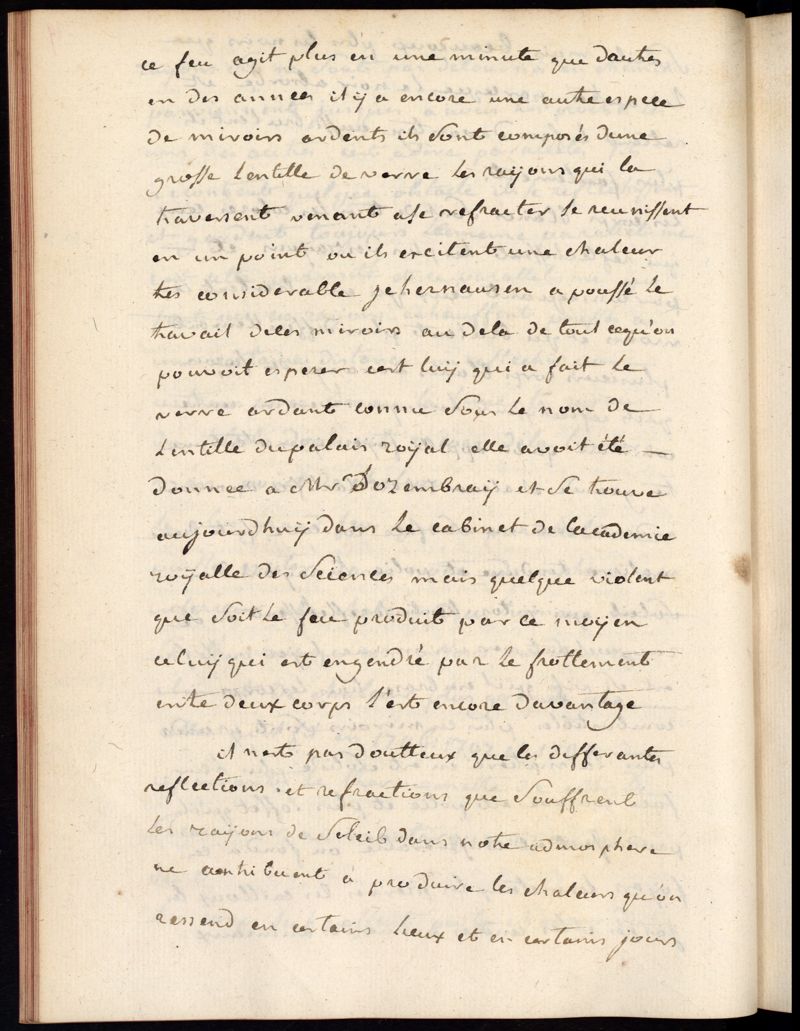 ce feu agit plus en une minute que dautres
en des annees il y a encore une autre espece
de miroirs ardents ils sont composés dune
grosse lentille de verre les raÿons qui la
traversent venant a se refracter se reunissent
en un point ou ils excitent une chaleur
tres considerable jehernausen a poussé le
travail deces miroirs au dela de tout cequ'on
pouvoit esperer cest luÿ qui a fait le
verre ardant connu sous le nom de
lentille dupalais roÿal elle avoit été —
donnee a Mr Dozembraÿ et se trouve
aujourdhuÿ dans le cabinet de lacademie
roÿalle des sciences mais quelque violent
que soit le feu produit par ce moÿen
celuÿ qui est engendré par le frottement
entre deux corps l'est encore davantage
il nest pas doutteux que les differantes
reflections et refractions que souffrent
les raÿons de soleil dans notre admosphere
ne contribuent a produire les chaleurs qu'on
ressend en certains lieux et en certains jours